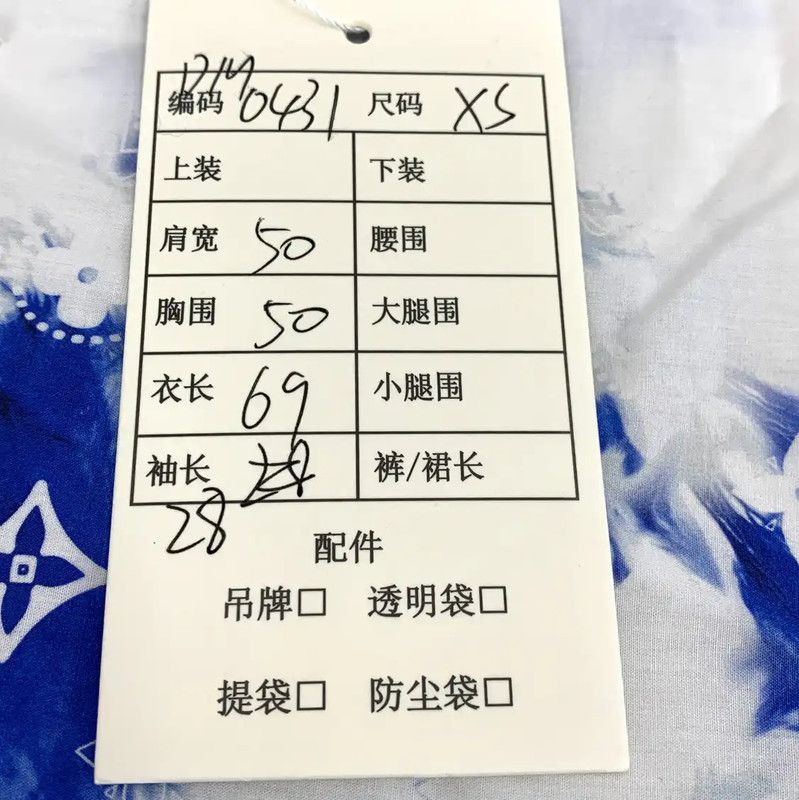 DM
编码 0431 尺码 XS
上装 下装
肩宽 50 腰围
胸围 50 大腿围
衣长 69 小腿围
袖长 裤/裙长
28
配件
吊牌□ 透明袋□
提袋□ 防尘袋□